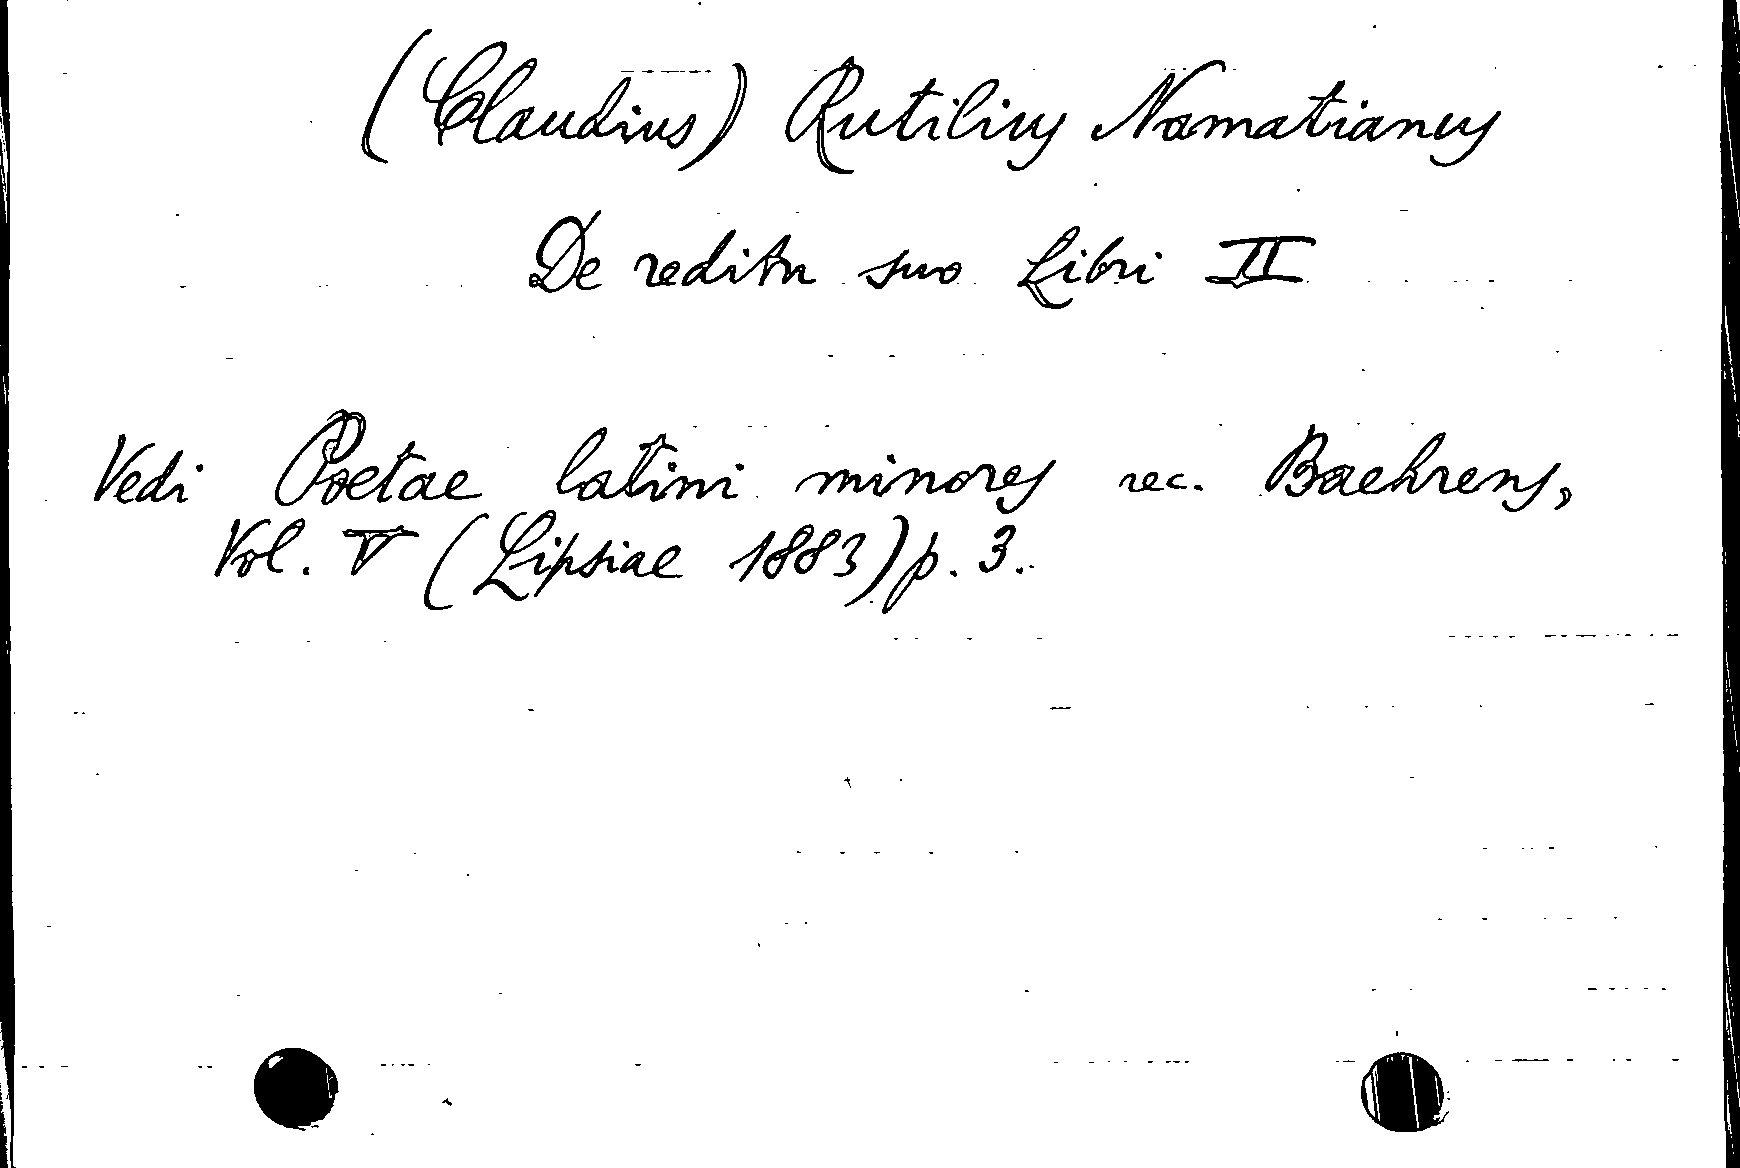 (Claudius) Rutilius Namatianus
De reditu suo Libri II
Vedi Poetae latini minores rec. Baehrens,
Vol. V (Lipsiae 1883) p. 3.